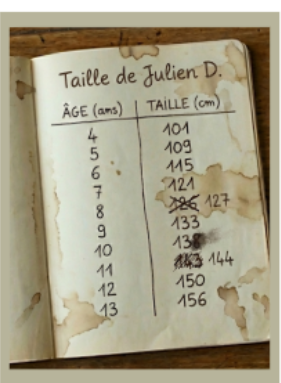 Taille de Julien D.
ÂGE (ans) TAILLE (cm)
4 101
5 109
6 115
7 121
8 126 127
9 133
10 138
11 143 144
12 150
13 156